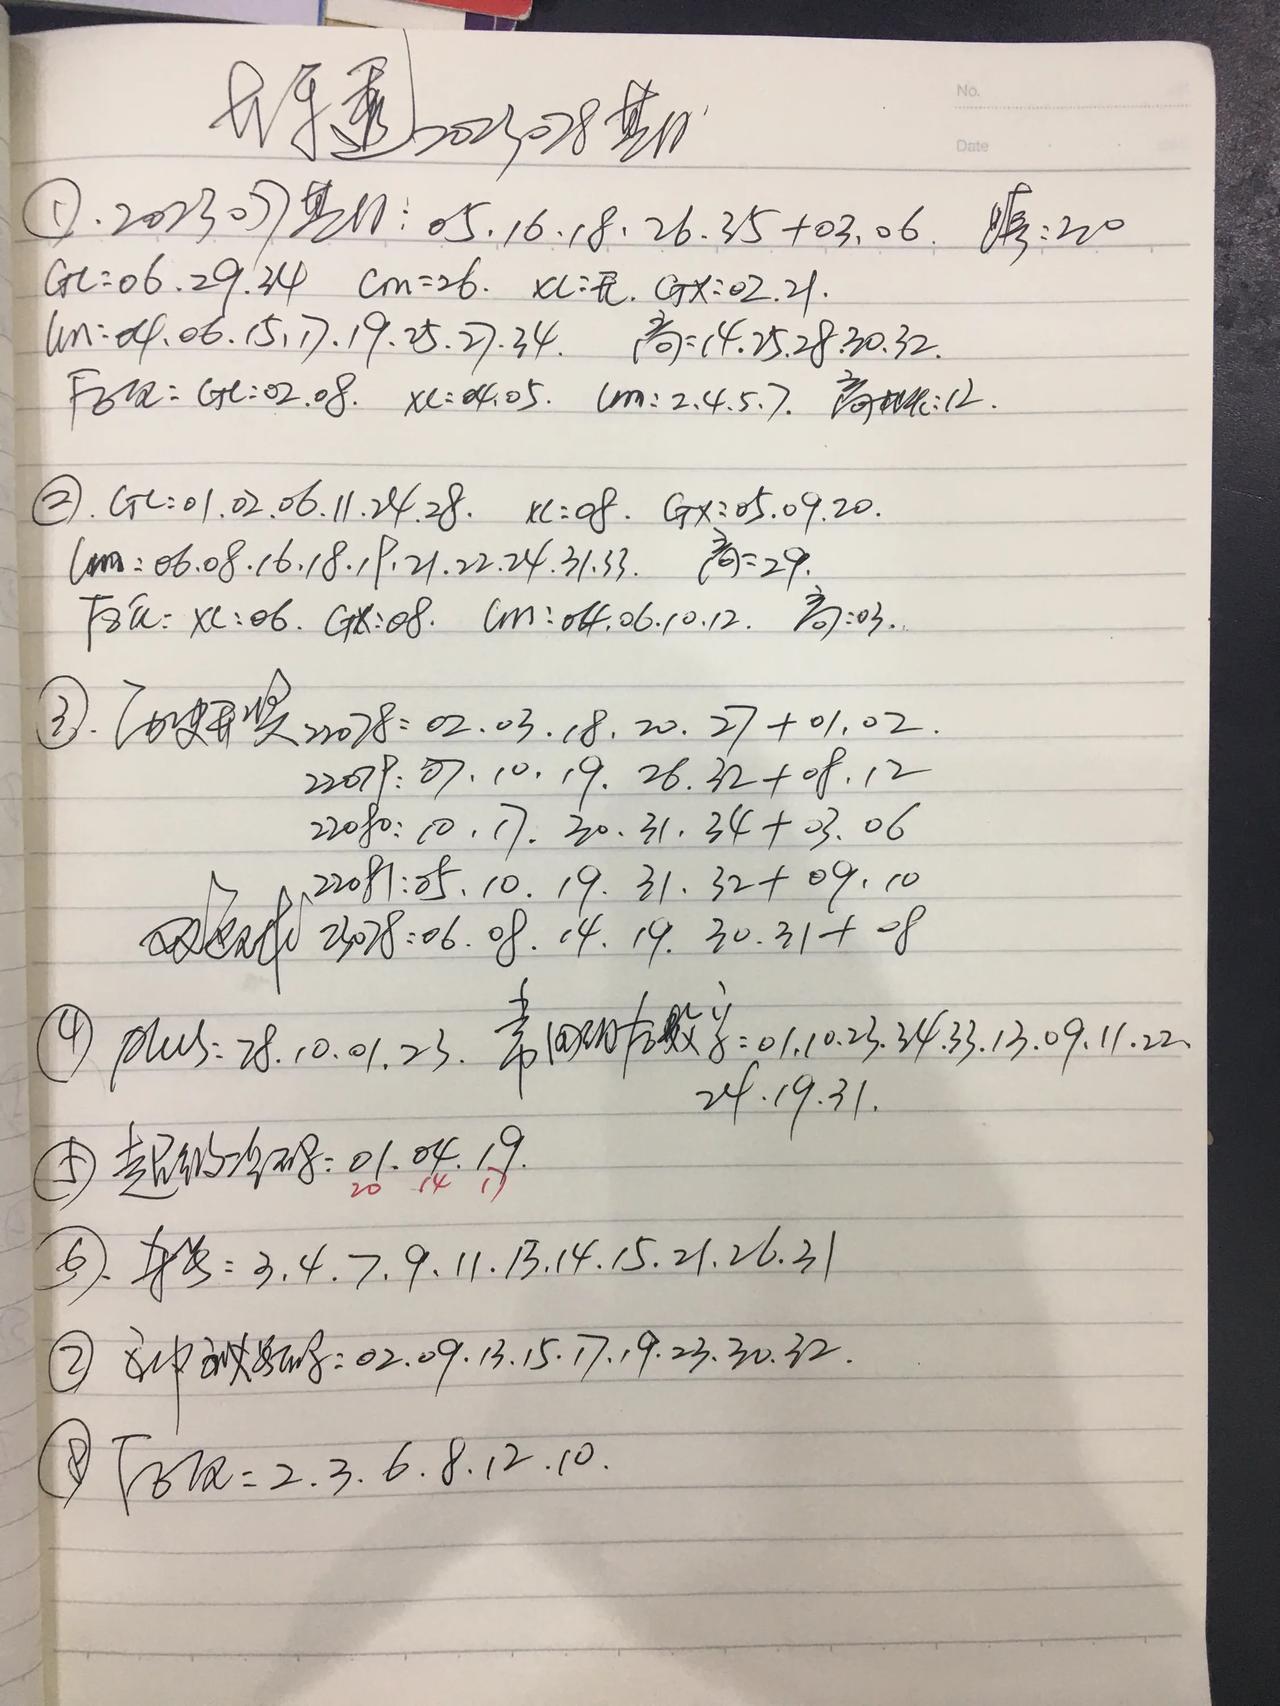 大乐透2023078期
No.
Date
①. 2023077期: 05.16.18.26.35+03.06.
GL=06.29.34 Lm=26. XL=无. GX=02.21.
Lm=04.06.15.17.19.25.27.34. 高=14.25.28.30.32.
下区= GL=02.08. XL=04.05. Lm=2.4.5.7. 高:12.
②. GL=01.02.06.11.24.28. XL=08. GX=05.09.20.
Lm=06.08.16.18.19.21.22.24.31.33. 高=29.
下区= XL=06. GX=08. Lm=04.06.10.12. 高=03.
③. 历史开奖22078=02.03.18.20.27+01.02.
22079:07.10.19.26.32+08.12
22080:10.17.30.31.34+03.06
22081:05.10.19.31.32+09.10
23078=06.08.14.19.30.31+08
④ plus=28.10.01.23. 数字=01.10.23.34.33.13.09.11.22.
24.19.31.
⑤ 冷码=01.04.19.
20 14 17
⑥. =3.4.7.9.11.13.14.15.21.26.31
⑦ =02.09.13.15.17.19.23.30.32.
⑧ 下区=2.3.6.8.12.10.